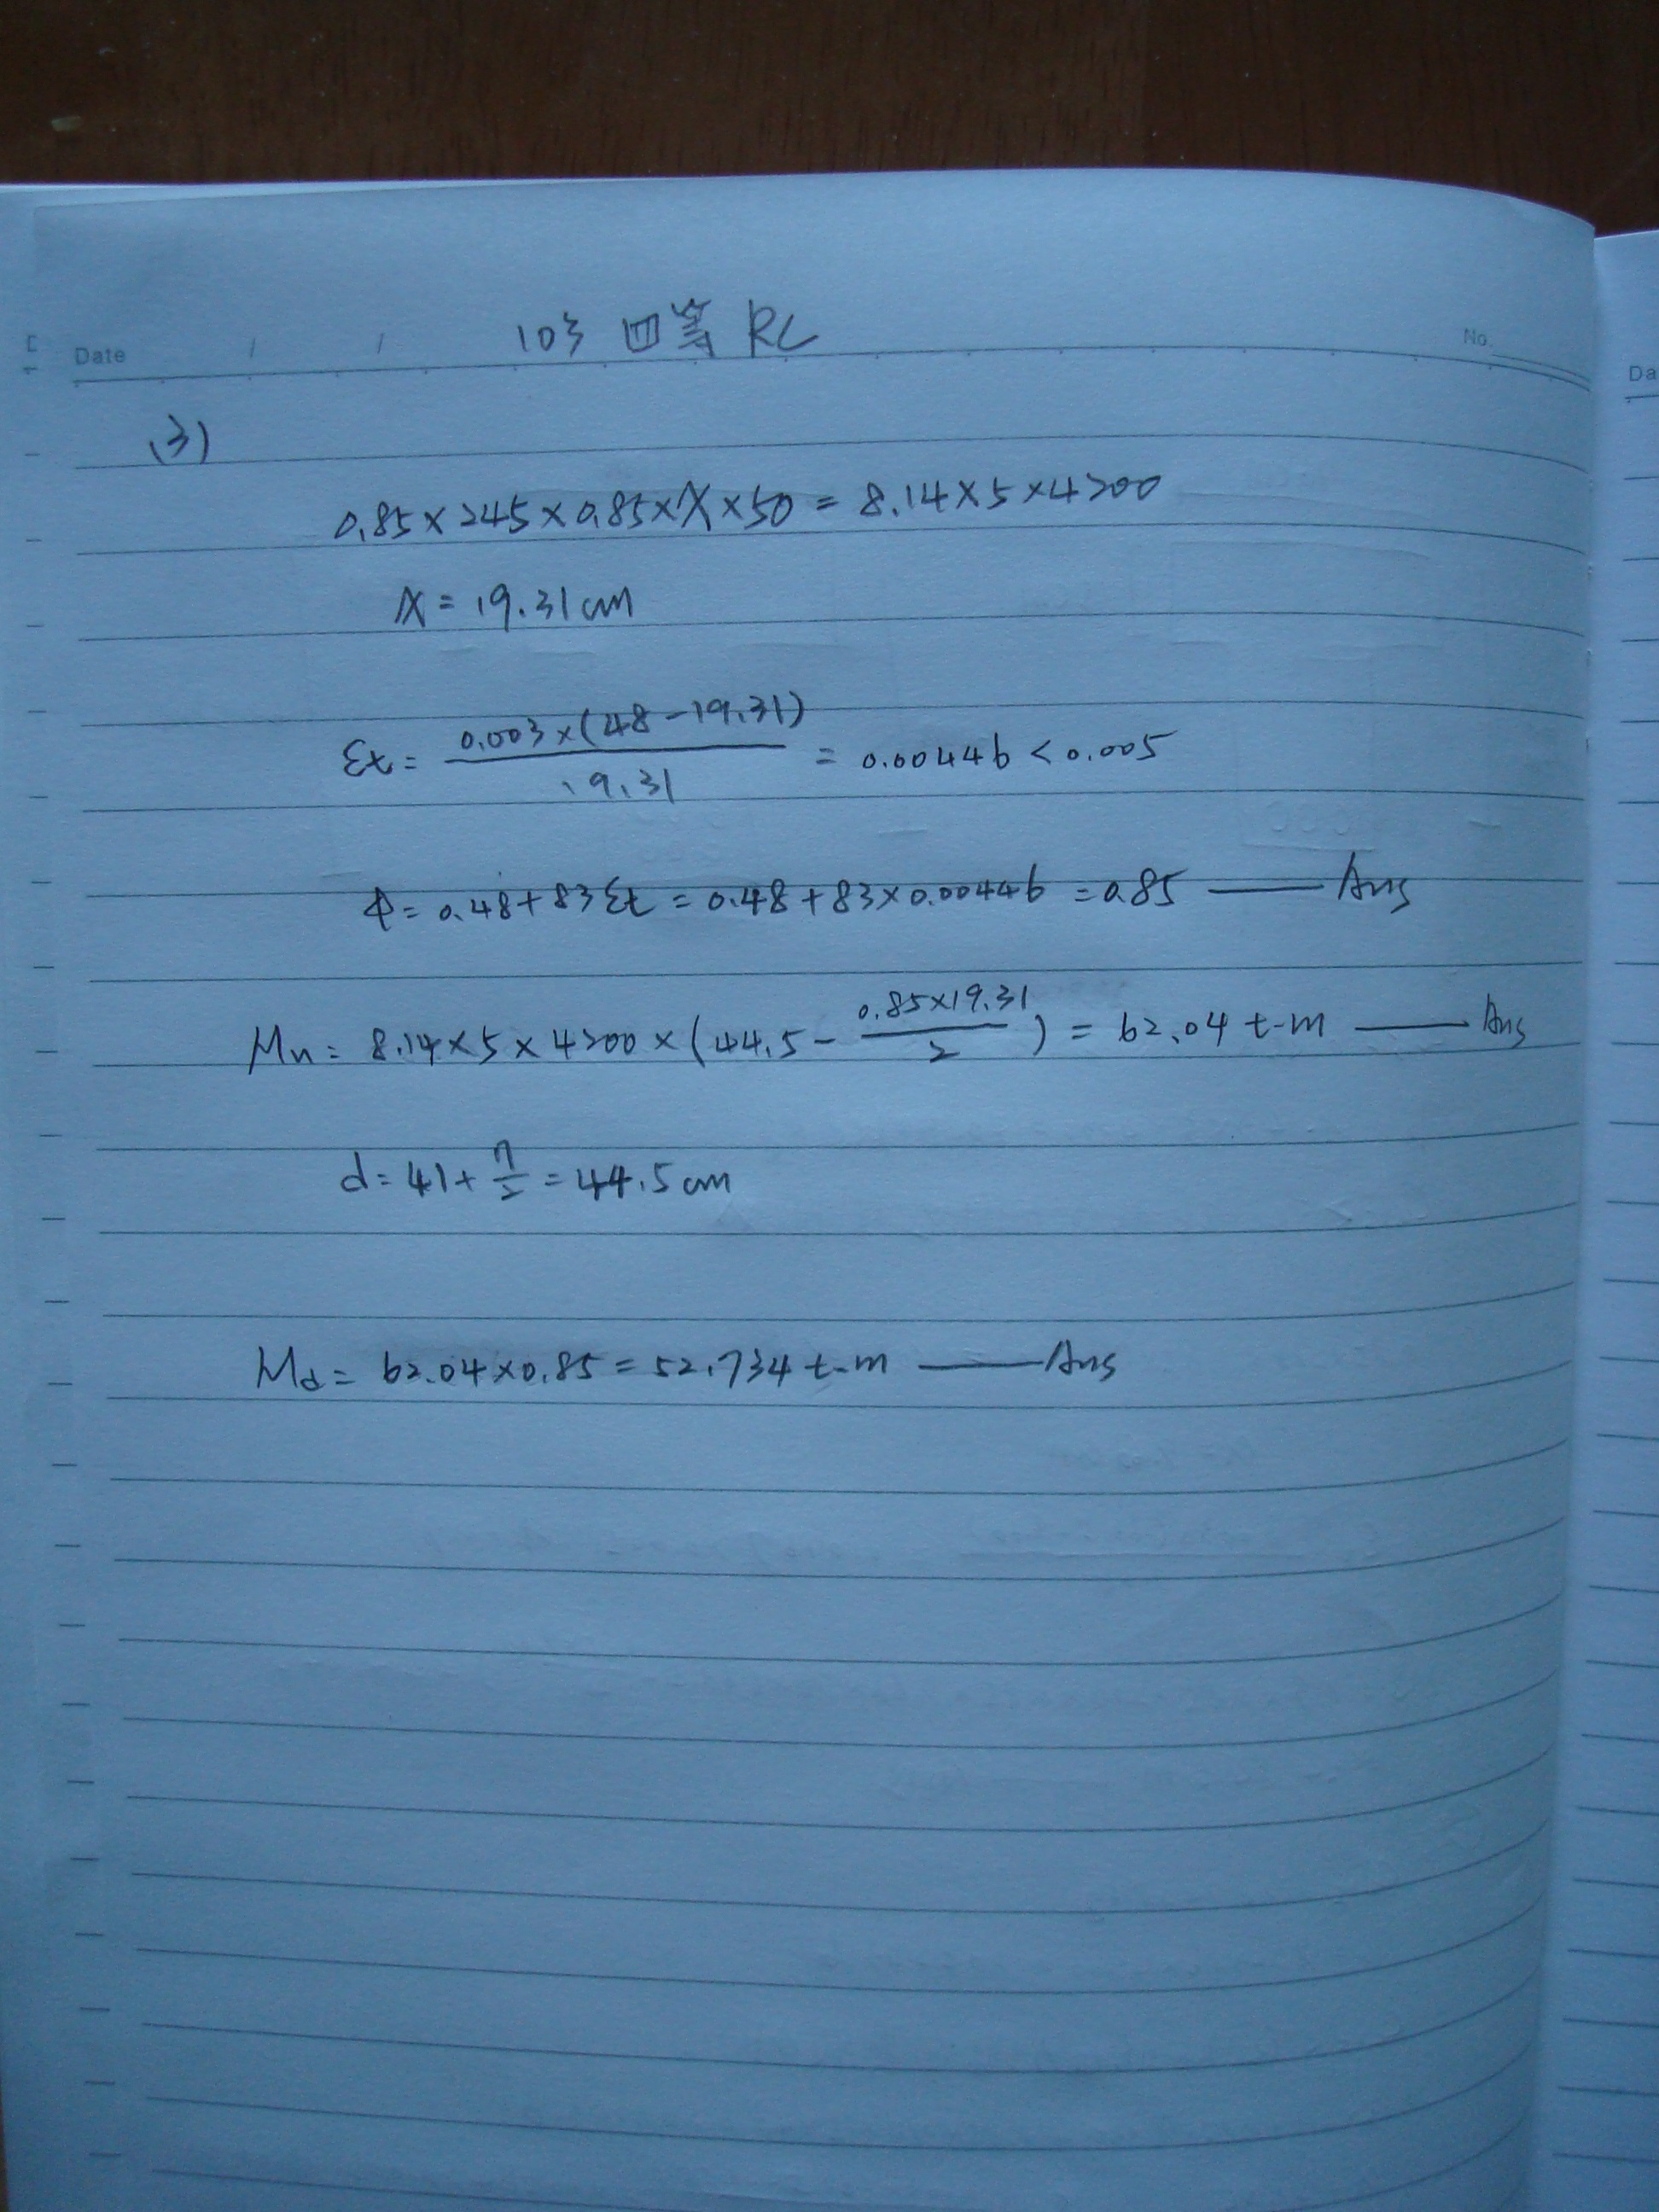 103 四等 RC
Date / / No.
Da
(3)
0.85×245×0.85×X×50 = 8.14×5×4200
X = 19.31cm
εt = 0.003×(48-19.31) / 19.31 = 0.00446 < 0.005
φ = 0.48+83εt = 0.48+83×0.00446 = 0.85 —— Ans
Mn = 8.14×5×4200×(44.5 - 0.85×19.31 / 2) = 62.04 t-m —— Ans
d = 41+7/2 = 44.5cm
Md = 62.04×0.85 = 52.734 t-m —— Ans